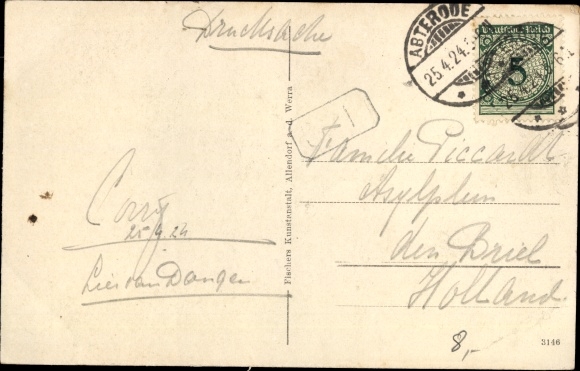 Drucksache
ABTERODE
25.4.24.
Deutsches Reich
5
Familie Piccardt
Asylplein
den Briel
Holland.
Corry
25/4.24
Lies van Dongen
Fischers Kunstanstalt, Allendorf a. d. Werra
8,-
3146